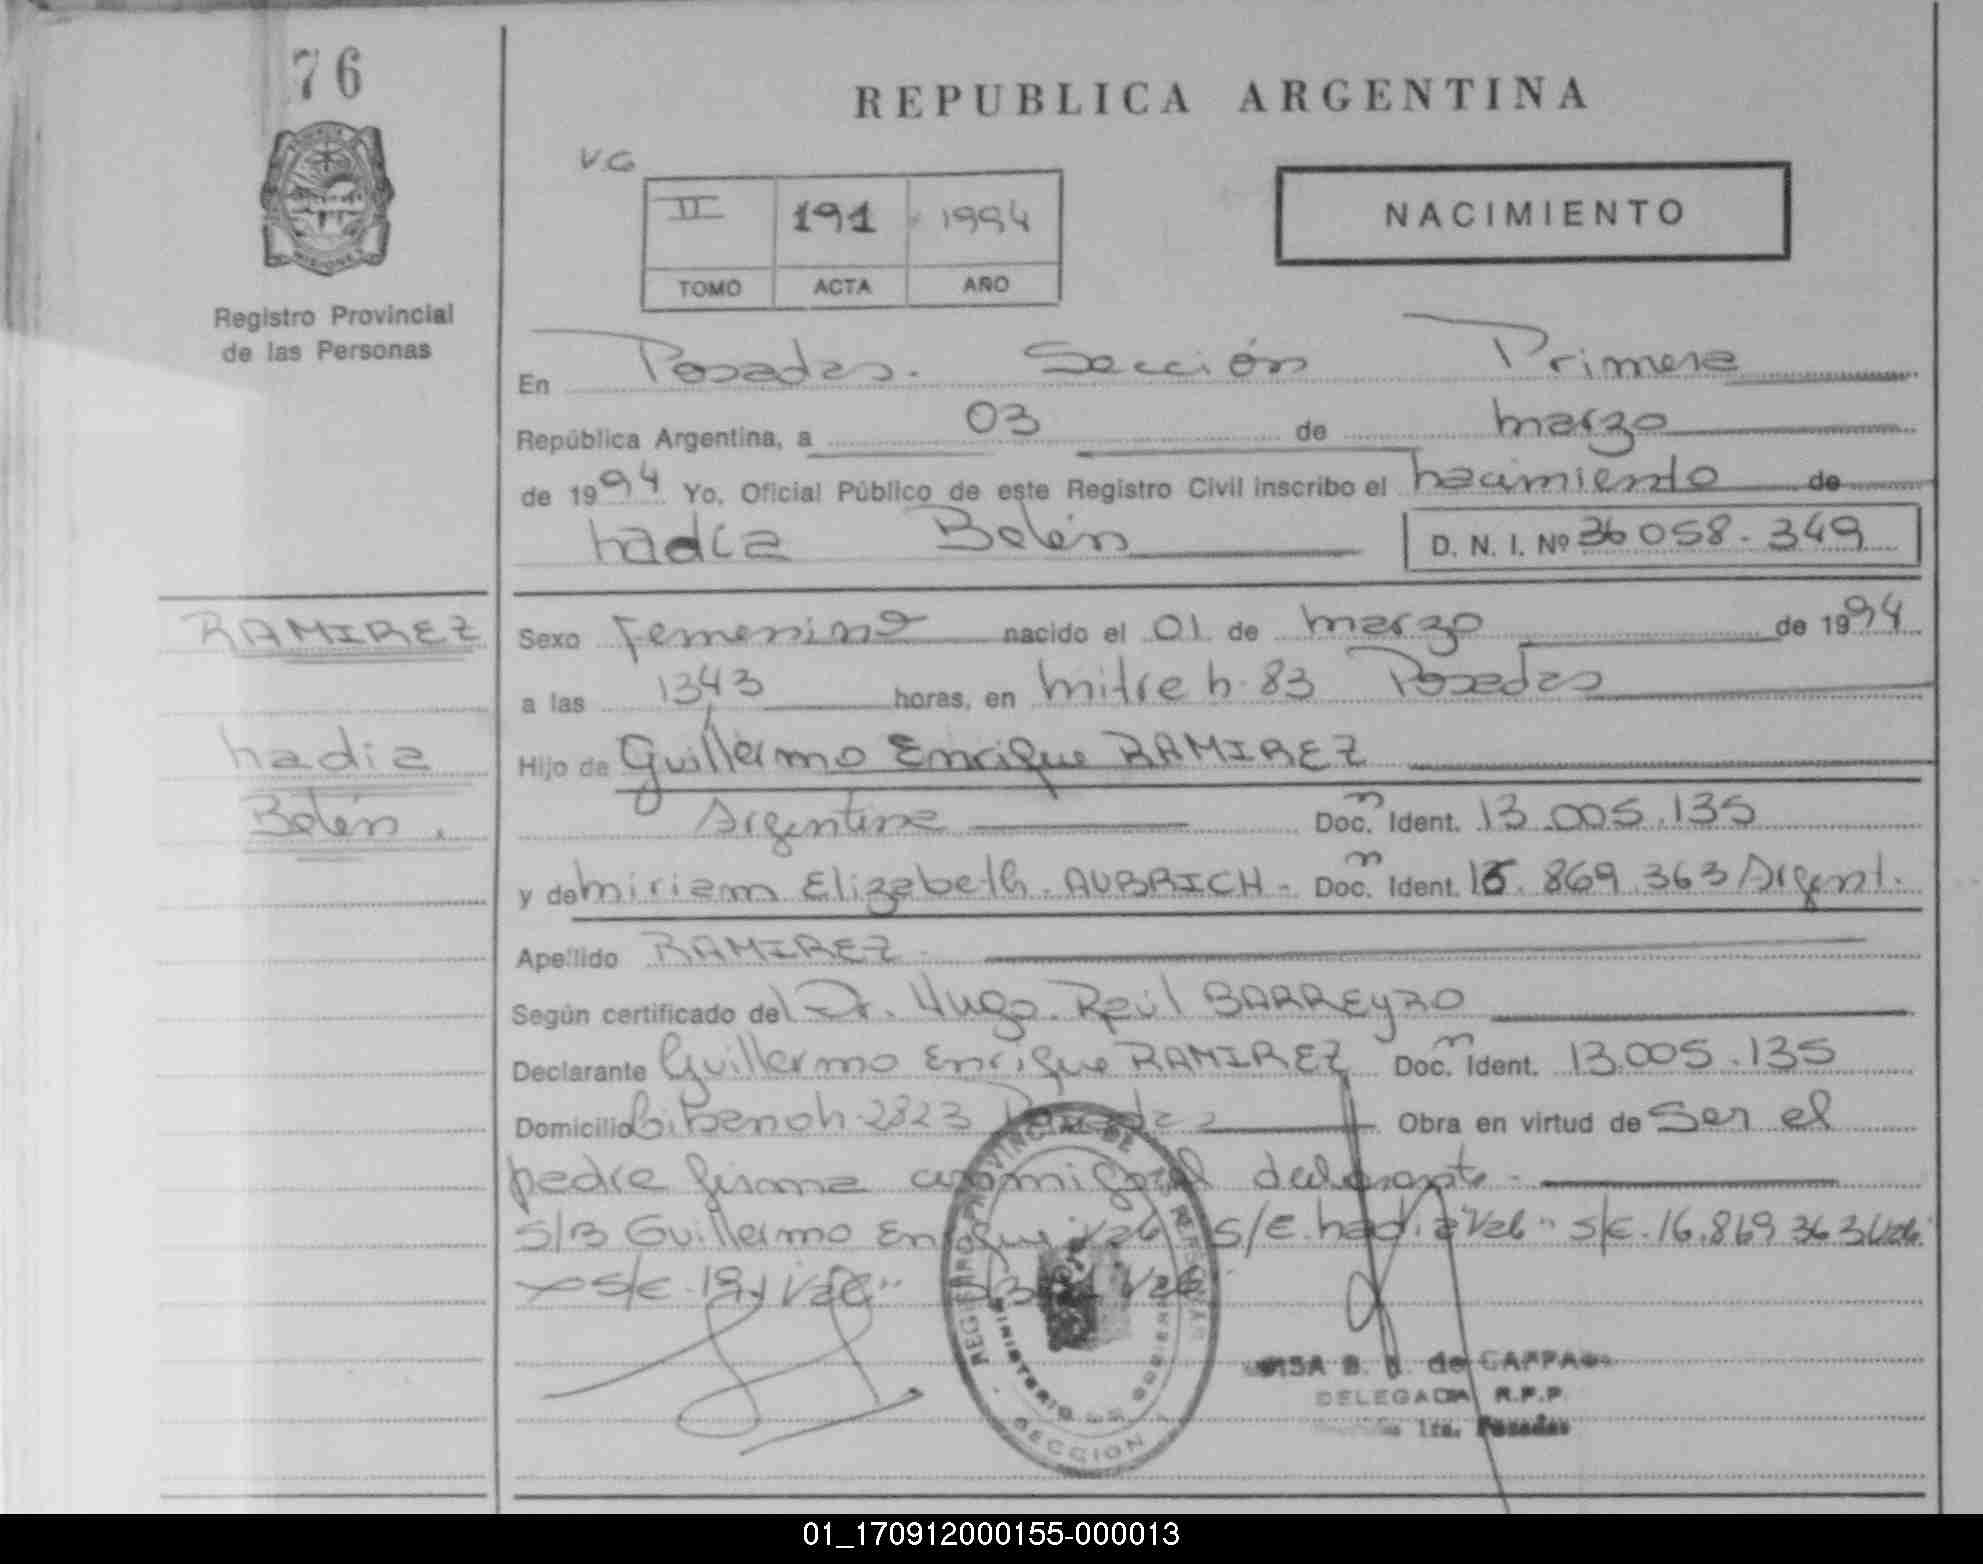 76
REPUBLICA ARGENTINA
V.G
II 191 1994
TOMO ACTA AÑO
NACIMIENTO
Registro Provincial
de las Personas
En Posadas. Sección Primera
República Argentina, a 03 de marzo
de 1994 Yo, Oficial Público de este Registro Civil inscribo el nacimiento de
Nadia Belén D. N. I. Nº 36 058.349
RAMIREZ
Nadia
Belén.
Sexo Femenino nacido el 01 de marzo de 1994
a las 1343 horas, en Mitre N. 83 Posadas
Hijo de Guillermo Enrique RAMIREZ
Argentina Doc. n Ident. 13.005.135
y de Miriam Elizabeth. AUBRICH - Doc. n Ident. 16.869.363 Argent.
Apellido RAMIREZ
Según certificado del Dr. Hugo. Raúl BARREYRO
Declarante Guillermo Enrique RAMIREZ Doc. n Ident. 13.005.135
Domicilio N. 2823 Posadas Obra en virtud de Ser el
padre firma conmigo el declarante.
S/B Guillermo Enrique Vale S/E. Nadia Vale" S/E. 16.869 363 Vale.
S/E. 191 Vale" S/B Vale
REGISTRO PROVINCIAL DE LAS PERSONAS
MINISTERIO DE GOBIERNO
SECCION 1
de CAPPA
DELEGADA R.P.P.
1ra. Posadas
01_170912000155-000013